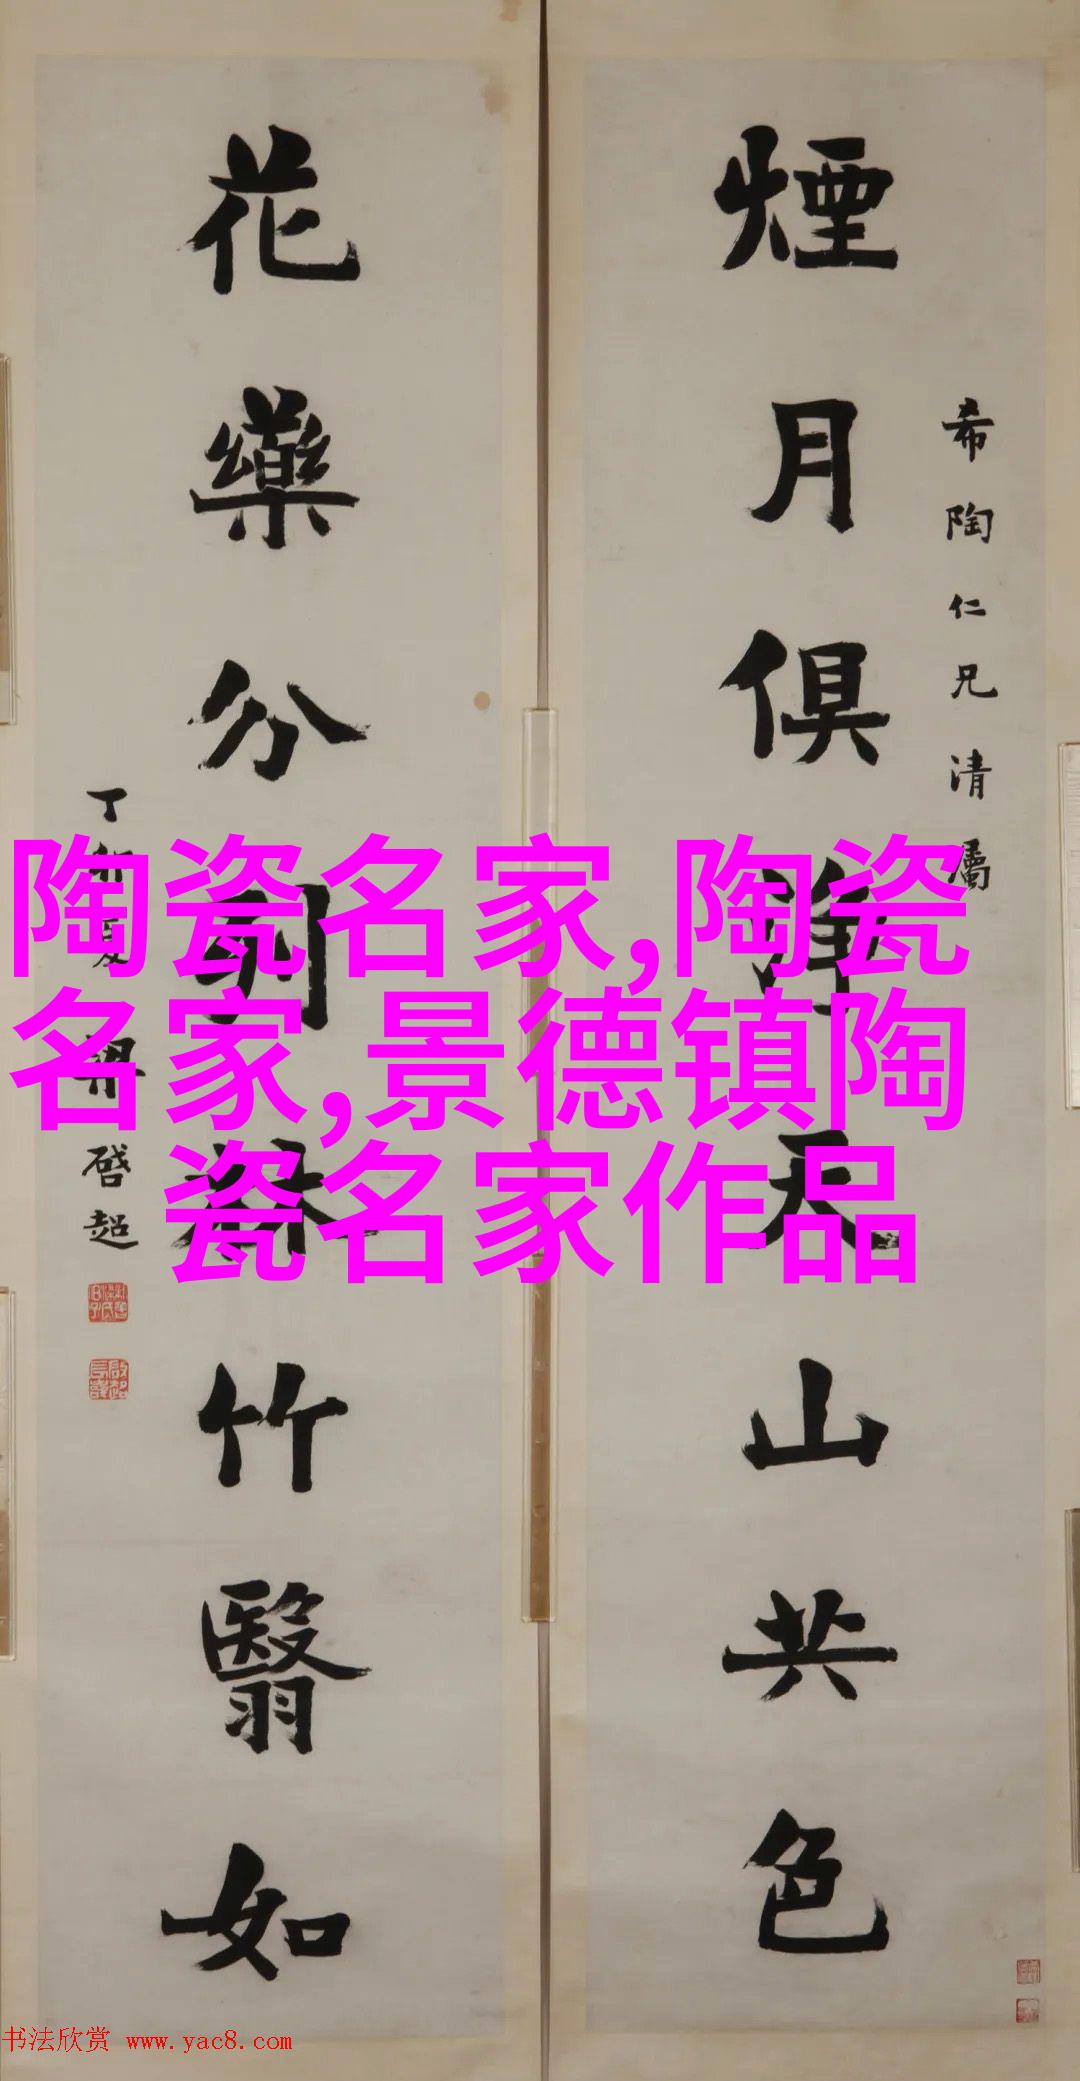 煙月俱澹天山共色
希陶仁兄清屬
花藥分列林竹翳如
丁卯夏 梁啓超
陶瓷名家,陶瓷
名家,景德镇陶
瓷名家作品
书法欣赏 www.yac8.com